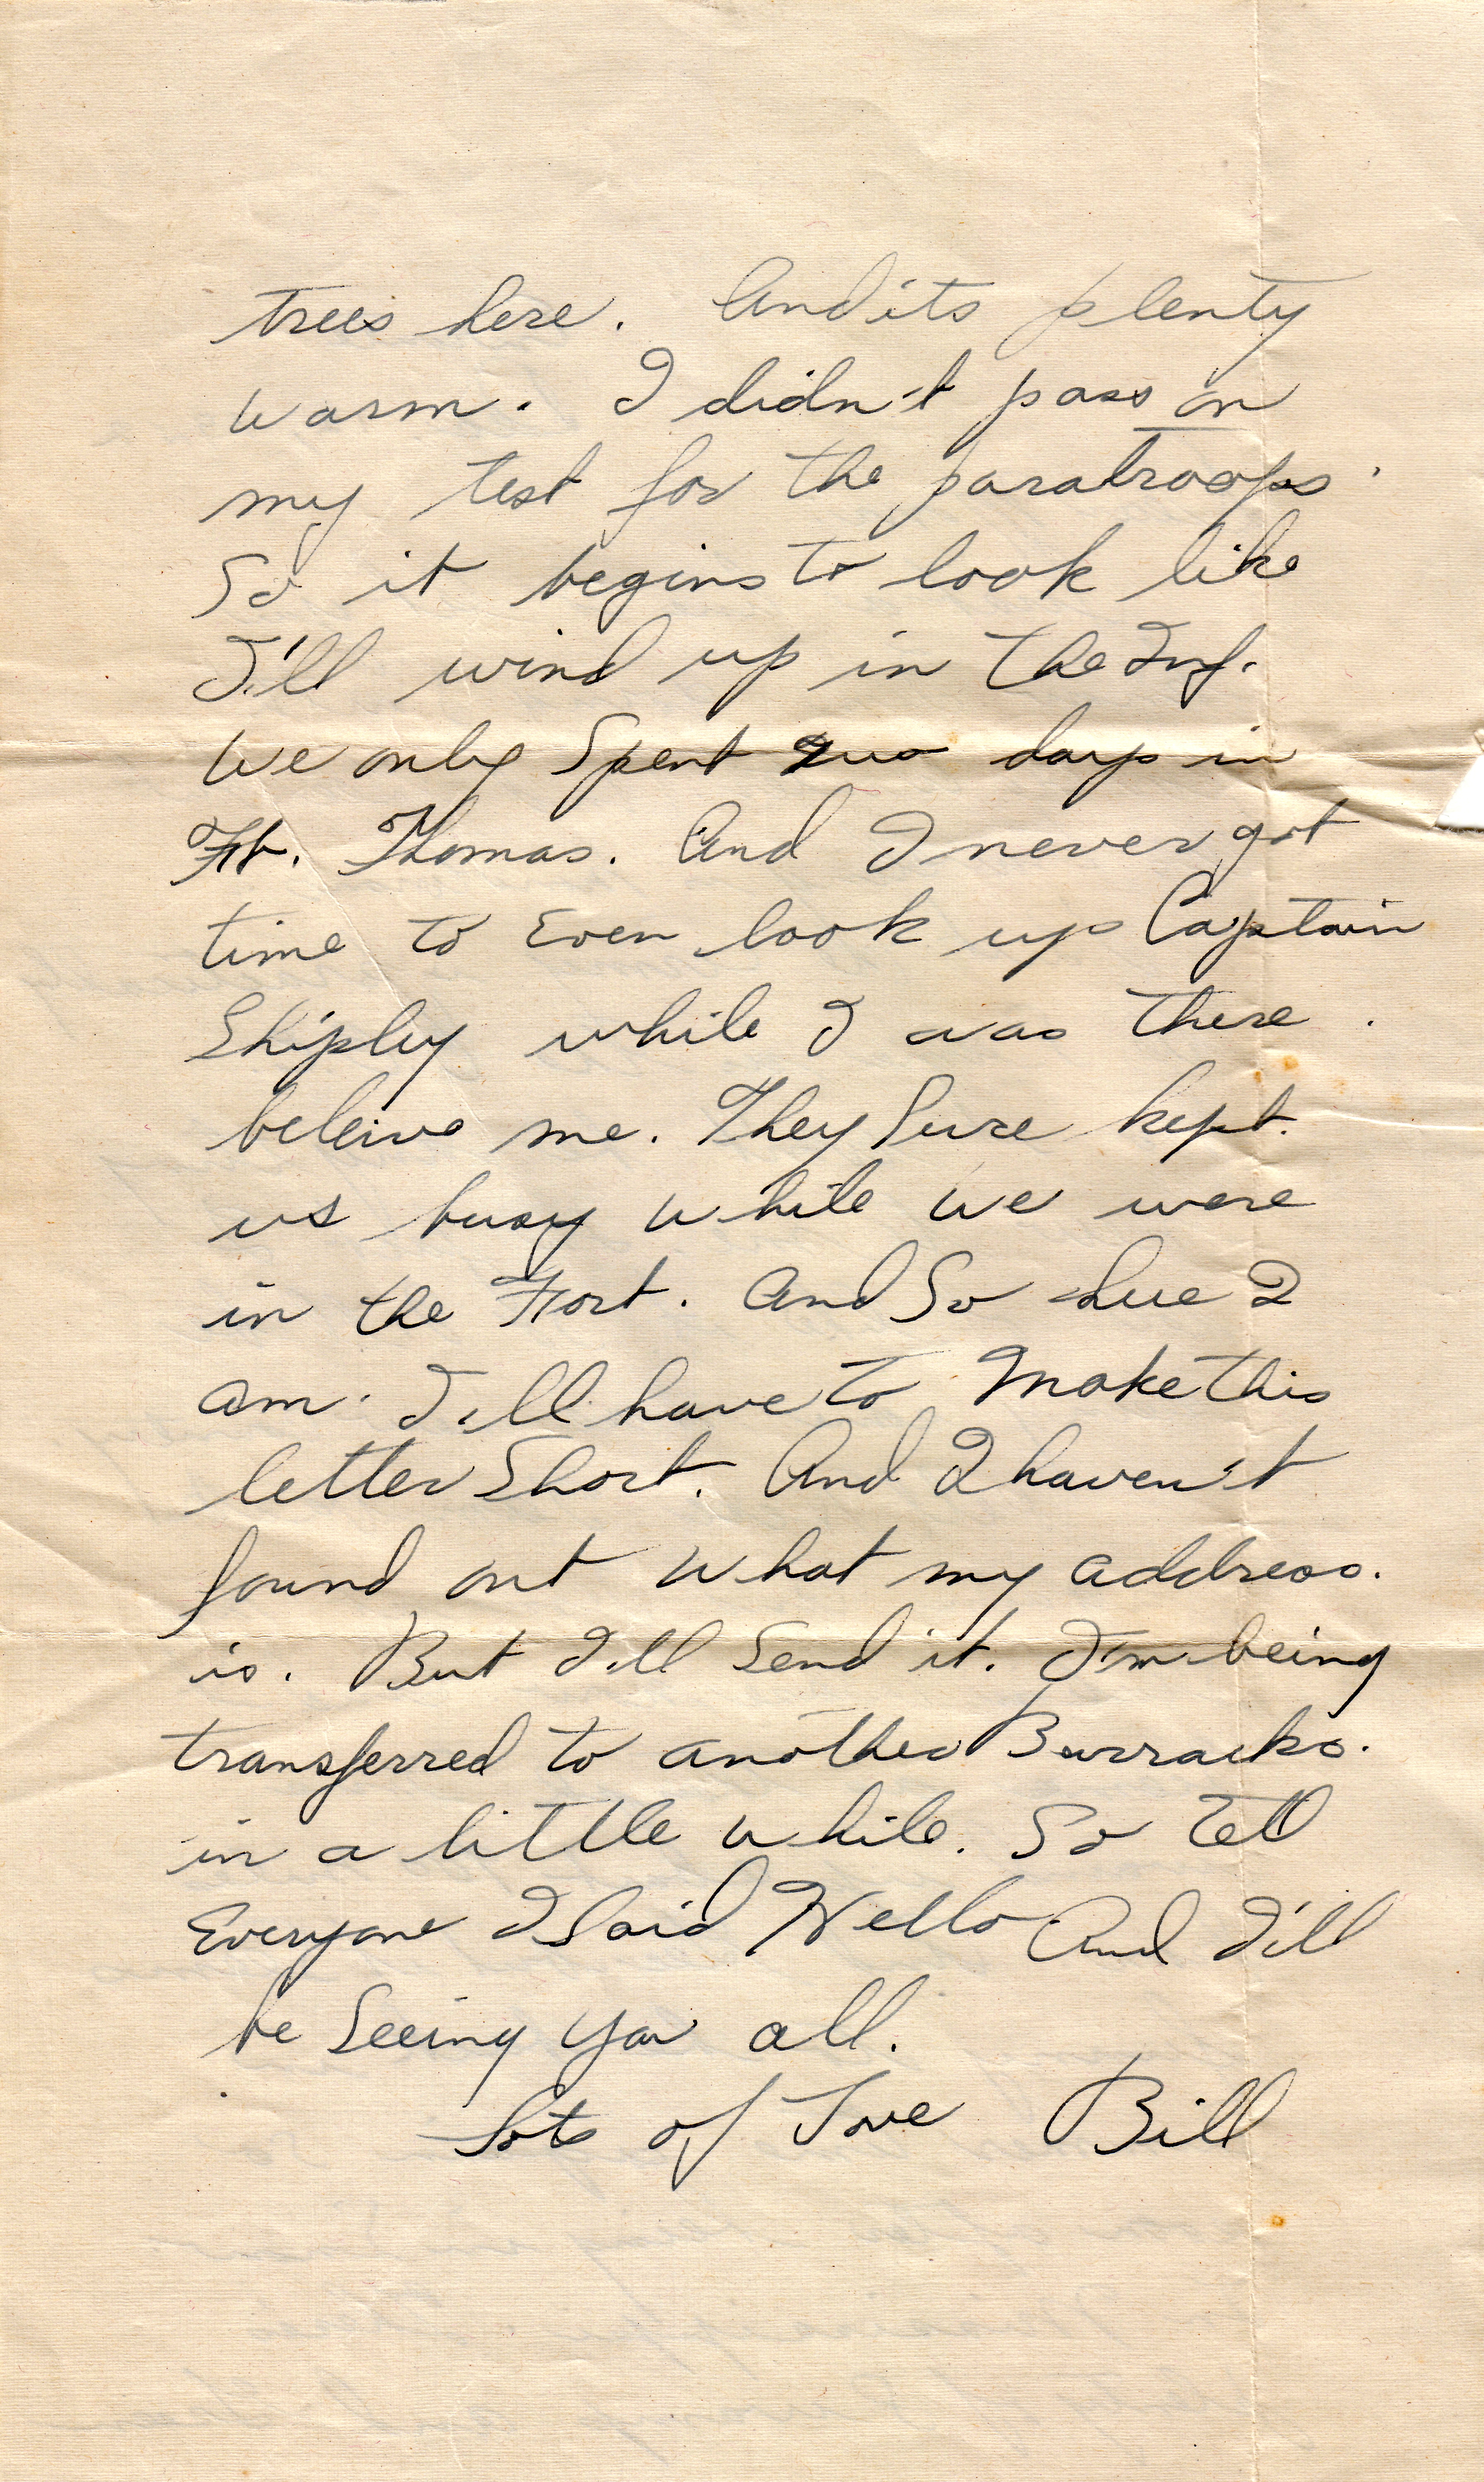 trees here. And its plenty
warm. I didn't pass on
my test for the paratroops.
So it begins to look like
I'll wind up in the Inf.
We only Spent two days in
Ft. Thomas. And I never got
time to Even look up Captain
Shipley while I was there.
beleive me. They Sure kept.
us busy while we were
in the Fort. And So here I
am. I'll have to Make this
letter Short. And I haven't
found out what my address.
is. But I'll Send it. I'm being
transferred to another Barracks.
in a little while. So Tell
Everyone I Said Hello And I'll
be Seeing you all.
Lots of Love Bill